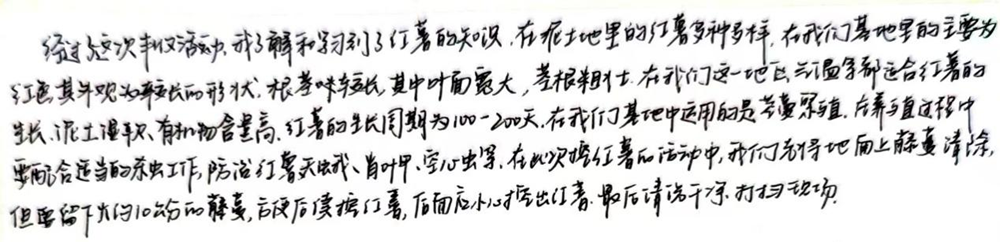 经过这次丰收活动,我了解和学习到了红薯的知识,在泥土地里的红薯多种多样,在我们基地里的主要为
红色其外观为较长的形状,根茎味较长,其中叶面宽大,茎根粗壮.在我们这一地区,气温全部适合红薯的
生长,泥土湿软、有机物含量高,红薯的生长周期为100-200天,在我们基地中运用的是苦藤繁殖,后养殖过程中
要配合适当的杀虫工作,防治红薯天蛾、肖叶甲、空心虫等.在此次挖红薯的活动中,我们先将地面上藤蔓清除,
但要留下大约10公分的藤蔓,方便后续挖红薯,后面应小心挖出红薯.最后清洗干净.打扫现场.